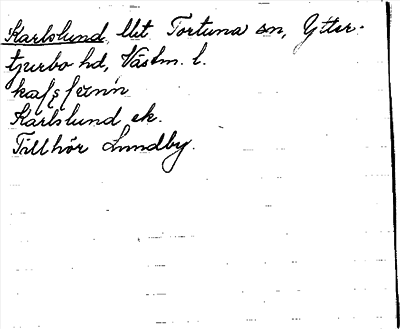 Karlslund, llit Tortuna sn, Ytter-
tjurbo hd, Västm. l.
Karlslund ek.
Tillhör Lundby.